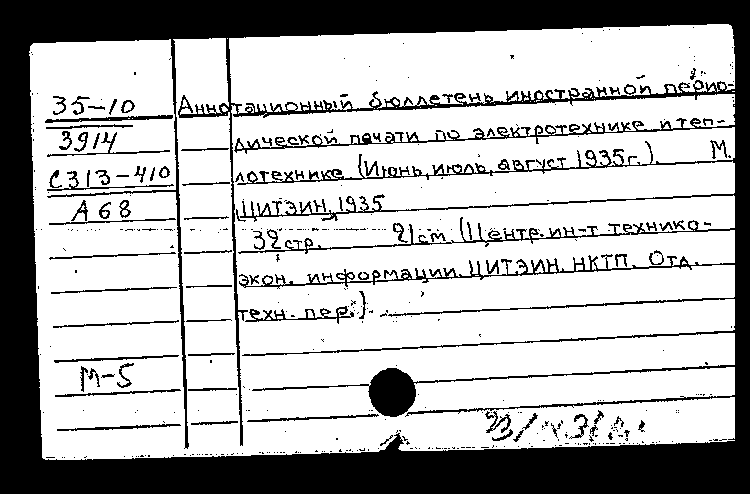 35-10 Аннотационный бюллетень иностранной перио-
3914 дической печати по электротехнике и теп-
С313-410 лотехнике (Июнь, июль, август 1935г.). М.
А68 ЦИТЭИН, 1935
32стр. 21см. (Центр. ин-т технико-
экон. информации. ЦИТЭИН. НКТП. Отд.
техн. пер.).
М-5